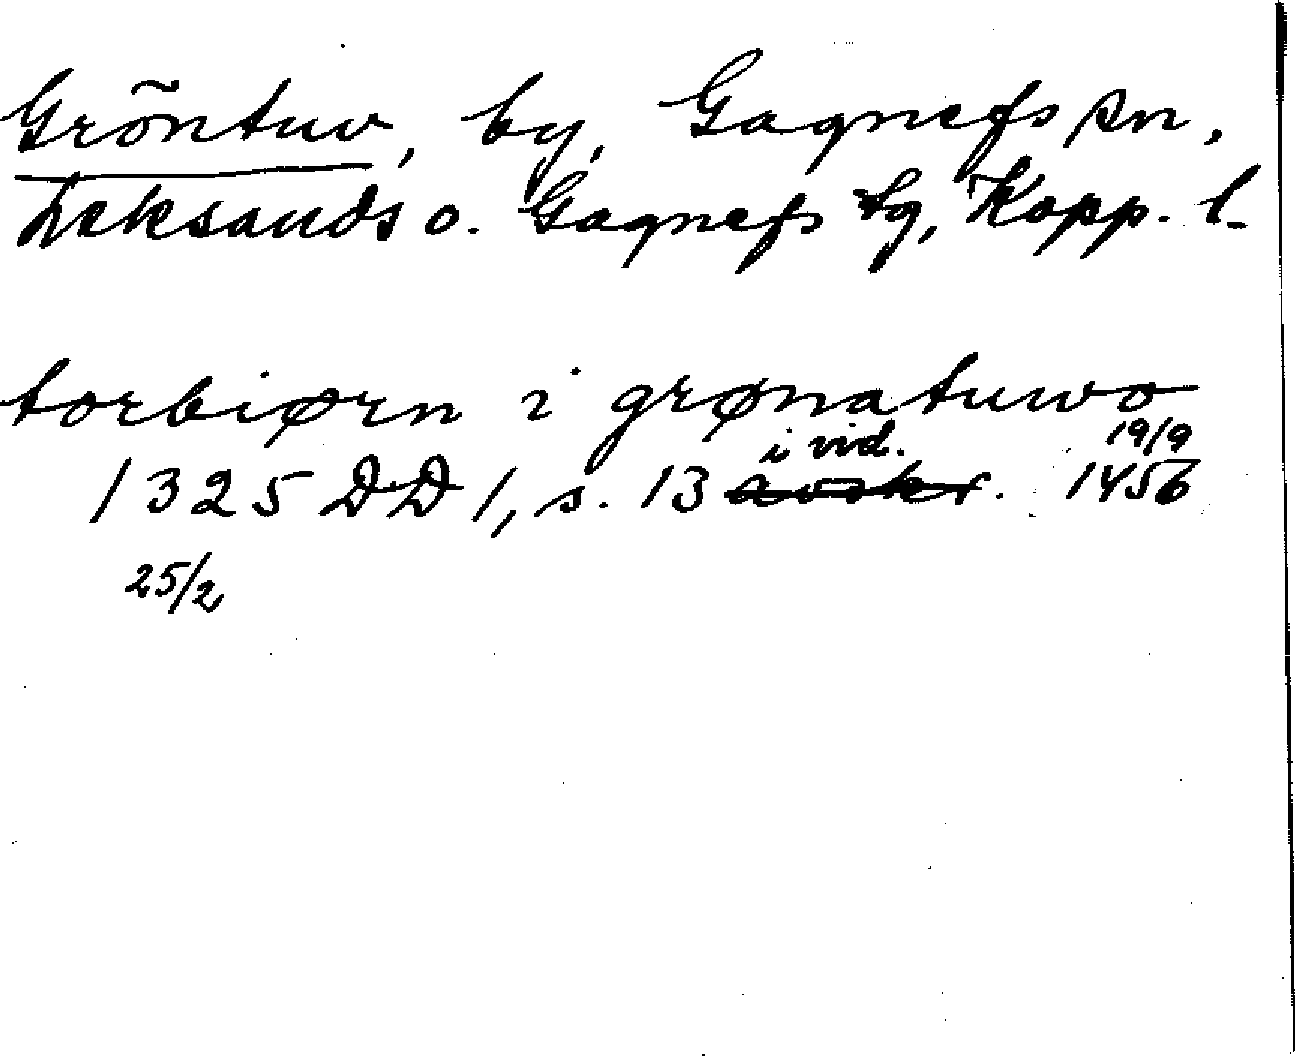 Gröntuv, by, Gagnefs sn,
Leksands o. Gagnefs tg, Kopp. l.
torbiørn i grønatuwo
i vid. 19/9
1325 DD 1, s. 13 avskr. 1456
25/2